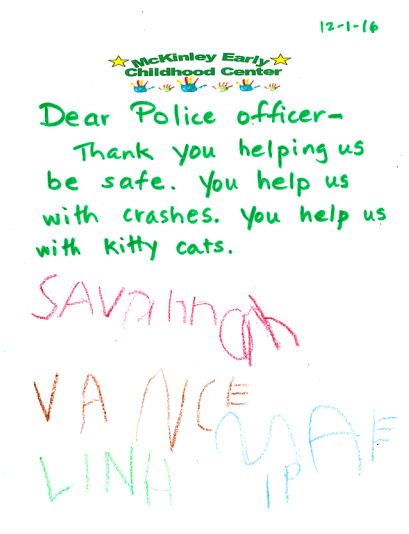 12-1-16
McKinley Early
Childhood Center
Dear Police officer-
Thank you helping us
be safe. You help us
with crashes. You help us
with kitty cats.
SAVannah
VANCE
MAE
LINA
IP